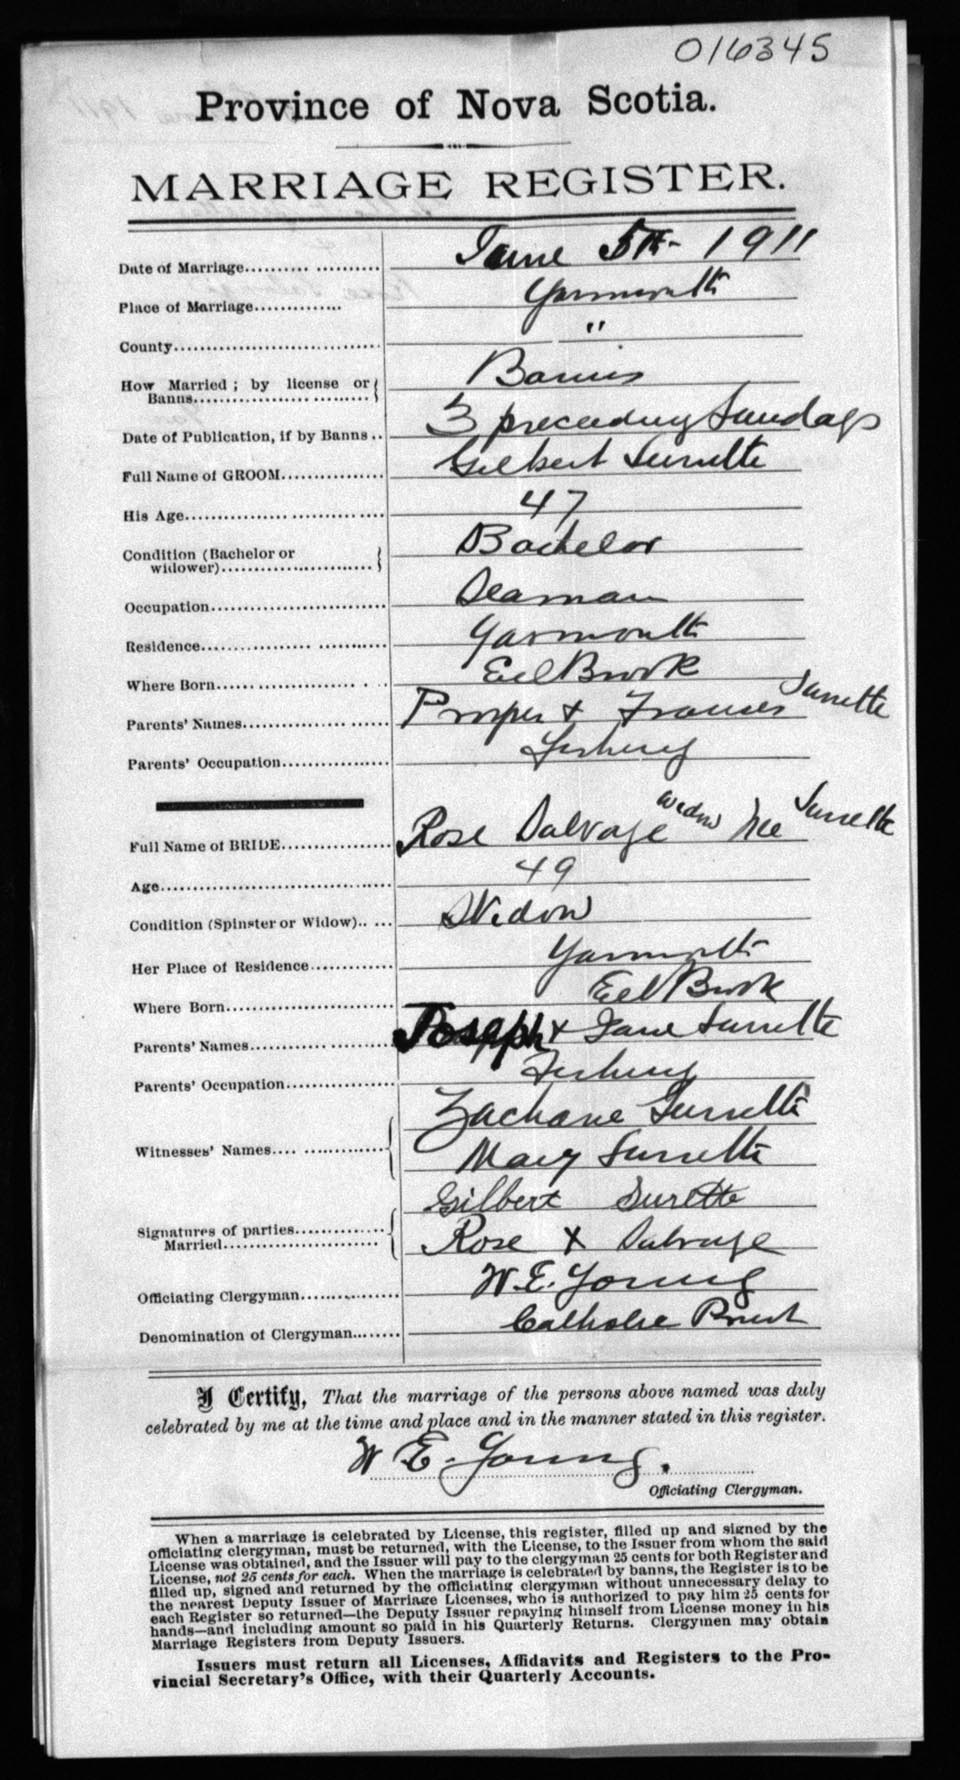 016345
Province of Nova Scotia.
MARRIAGE REGISTER.
Date of Marriage.................... June 5th- 1911
Place of Marriage............. Yarmouth
County................................ "
How Married ; by license or
Banns............................ Banns
Date of Publication, if by Banns .. 3 preceeding Sundays
Full Name of GROOM................ Gilbert Surrette
His Age............................... 47
Condition (Bachelor or
widower)......................... Bachelor
Occupation............................ Seaman
Residence............................. Yarmouth
Where Born........................ Eel Brook
Parents' Names....................... & Frances Surrette
Parents' Occupation................. Fishing
Full Name of BRIDE................. Rose Salvage widow Nee Surrette
Age..................................... 49
Condition (Spinster or Widow)...... Widow
Her Place of Residence............. Yarmouth
Where Born........................... Eel Brook
Parents' Names...................... Joseph & Jane Surrette
Parents' Occupation................. Fishing
Witnesses' Names.... ............. Zacharie Surrette
Mary Surrette
Signatures of parties.............. Gilbert Surette
Married......................... Rose X Salvage
Officiating Clergyman............... W. E. Young
Denomination of Clergyman........ Catholic Priest
I Certify, That the marriage of the persons above named was duly
celebrated by me at the time and place and in the manner stated in this register.
W E. Young.
Officiating Clergyman.
When a marriage is celebrated by License, this register, filled up and signed by the
officiating clergyman, must be returned, with the License, to the Issuer from whom the said
License was obtained, and the Issuer will pay to the clergyman 25 cents for both Register and
License, not 25 cents for each. When the marriage is celebrated by banns, the Register is to be
filled up, signed and returned by the officiating clergyman without unnecessary delay to
the nearest Deputy Issuer of Marriage Licenses, who is authorized to pay him 25 cents for
each Register so returned—the Deputy Issuer repaying himself from License money in his
hands—and including amount so paid in his Quarterly Returns. Clergymen may obtain
Marriage Registers from Deputy Issuers.
Issuers must return all Licenses, Affidavits and Registers to the Pro-
vincial Secretary's Office, with their Quarterly Accounts.